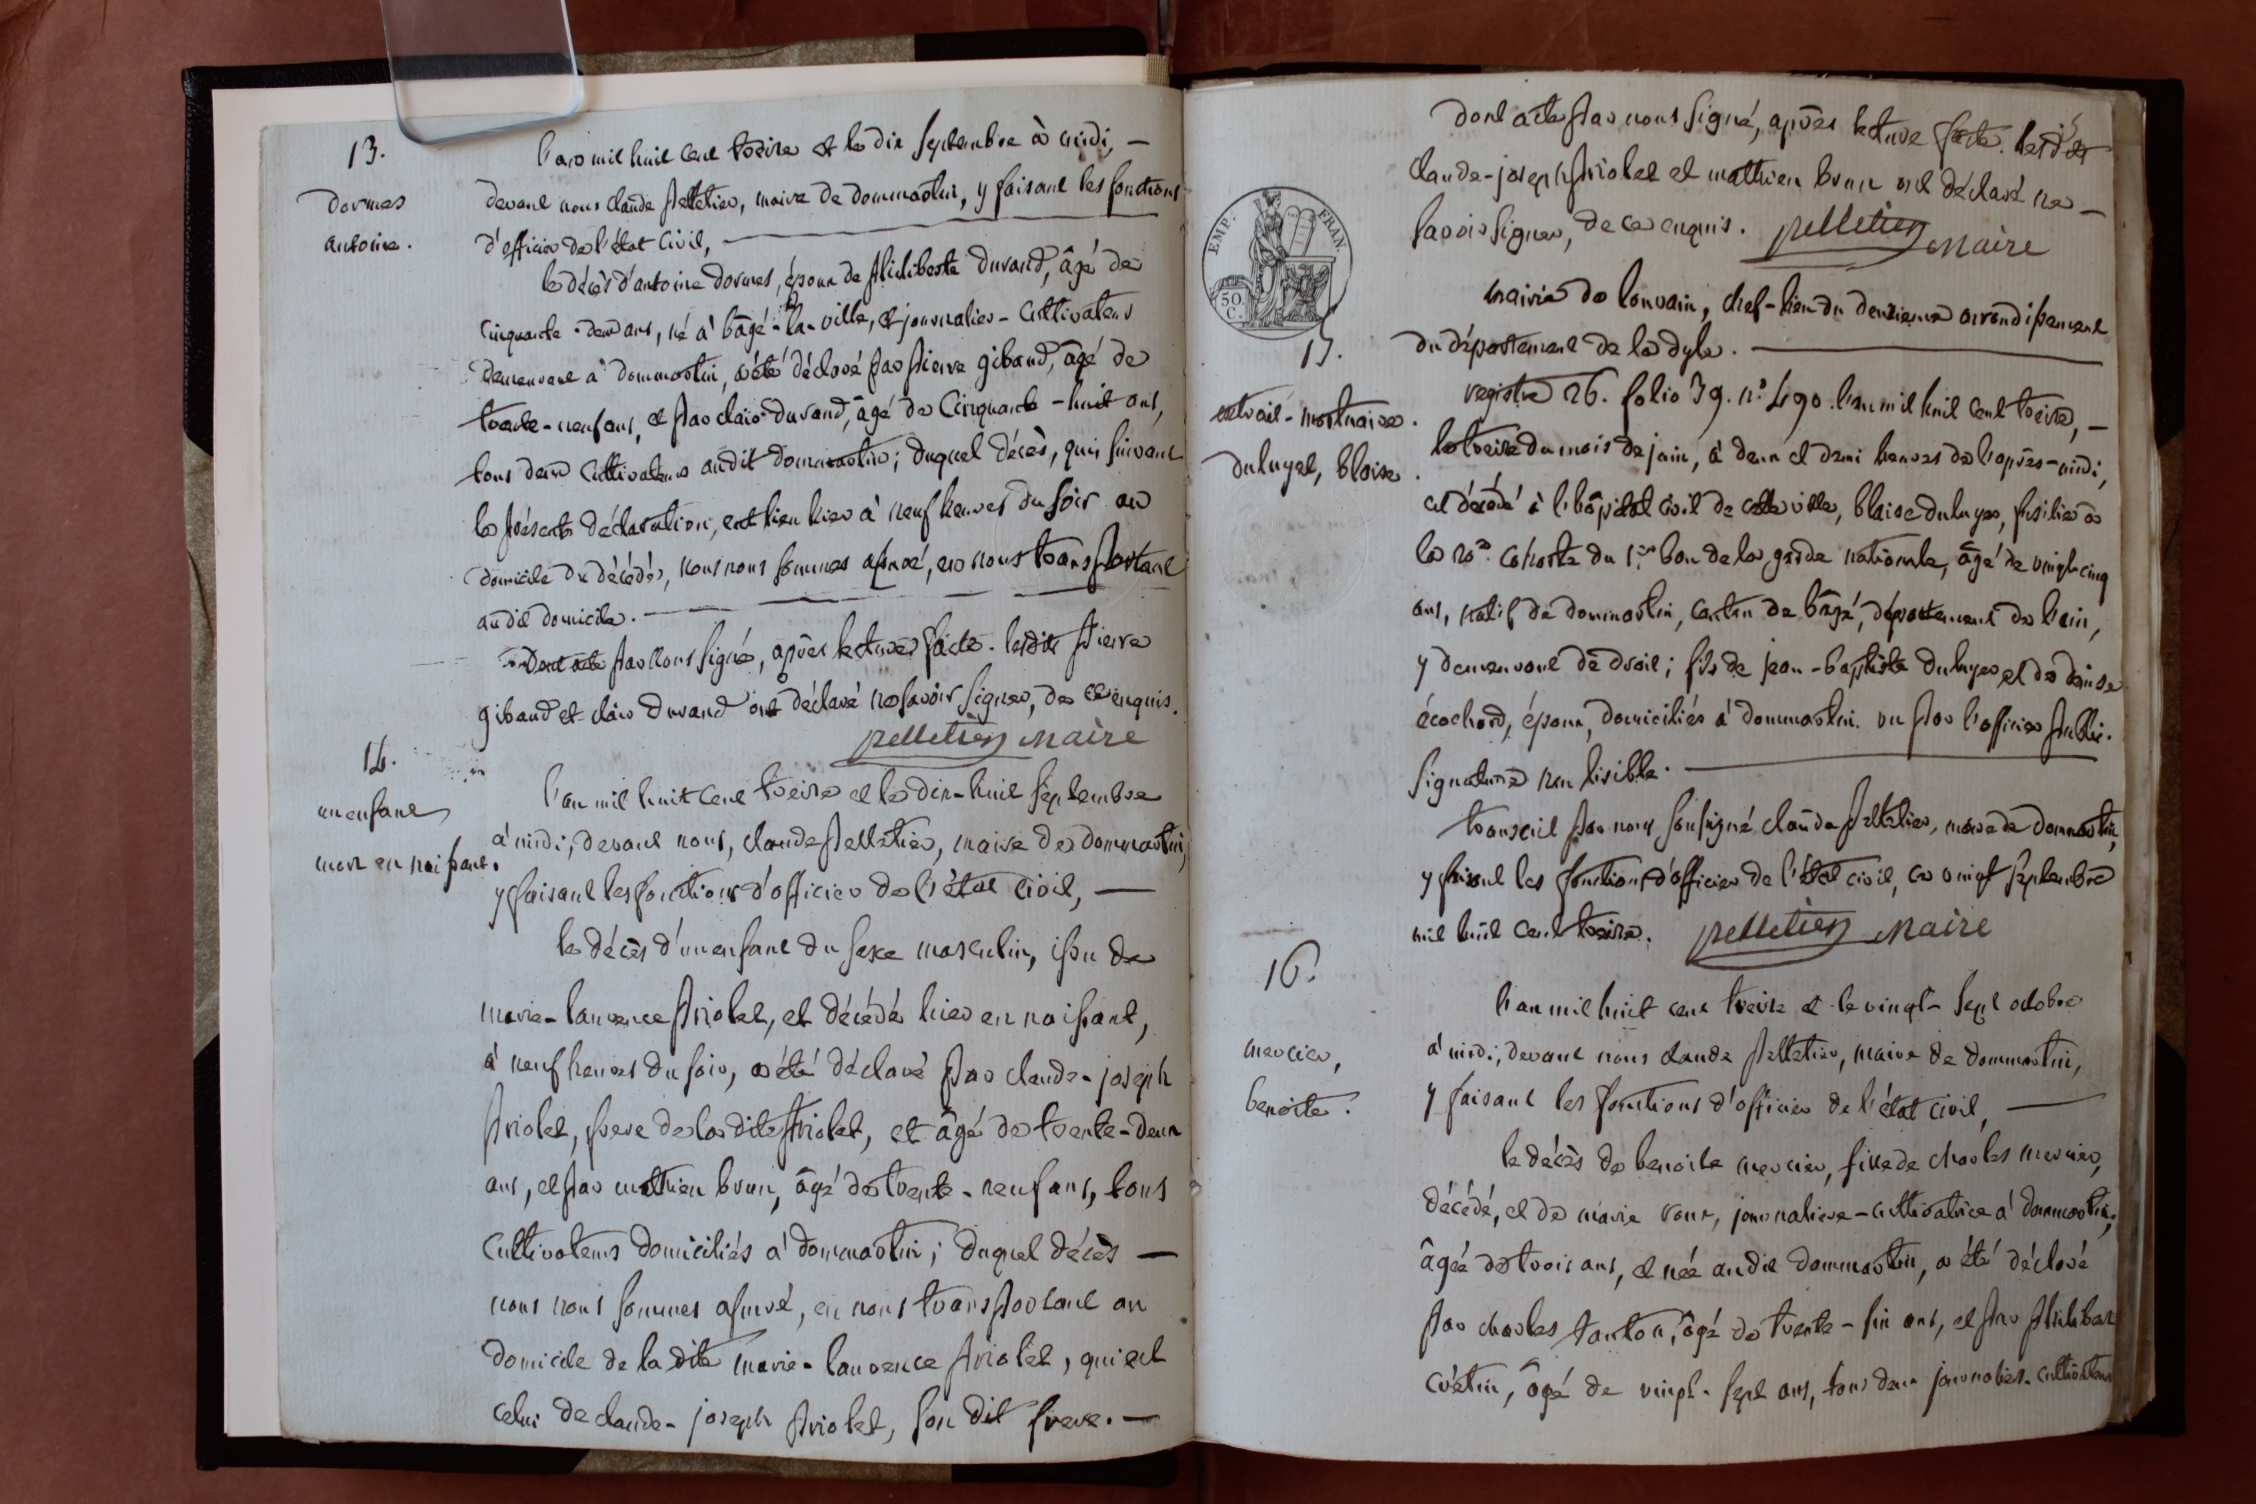 13.
dormes
antoine.
l'an mil huit cent treize et le dix septembre à midi, —
devant nous claude pelletier, maire de dommartin, y faisant les fonctions
d'officier de l'état civil, —
le décès d'antoine dormes, époux de philiberte durand, âgé de
cinquante-deux ans, né à bâgé-la-ville, et journalier-cultivateur
demeurant à dommartin, a été déclaré par pierre giband, âgé de
trente-neuf ans, et par clair durand, âgé de cinquante-huit ans,
tous deux cultivateurs audit dommartin; duquel décès, qui, suivant
la présente déclaration, eut lieu hier à neuf heures du soir au
domicile du décédé, nous nous sommes assuré, en nous transportant
audit domicile. —
Dont acte par nous signé, après lecture faite. lesdits pierre
giband et clair durand ont déclaré ne savoir signer, de ce enquis.
pelletier maire
14.
un enfant
mort en naissant.
l'an mil huit cent treize et le dix-huit septembre
à midi, devant nous, claude pelletier, maire de dommartin,
y faisant les fonctions d'officier de l'état civil, —
le décès d'un enfant du sexe masculin, issu de
marie-laurence priolet, et décédé hier en naissant,
à neuf heures du soir, a été déclaré par claude-joseph
priolet, frere de la dite priolet, et âgé de trente-deux
ans, et par mathieu brun, âgé de trente-neuf ans, tous
cultivateurs domiciliés à dommartin; duquel décès —
nous nous sommes assuré, en nous transportant au
domicile de la dite marie-laurence priolet, qui est
celui de claude-joseph priolet, son dit frere. —
dont acte par nous signé, après lecture faite. lesdits
claude-joseph priolet et mathieu brun ont déclaré ne —
savoir signer, de ce enquis. pelletier maire
EMP. FRAN.
50. C.
15.
extrait-mortuaire.
duluyet, blaise.
mairie de louvain, chef-lieu du deuxieme arrondissement
du département de la dyle. —
registre 26. folio 39. n.° 490. l'an mil huit cent treize, —
le treize du mois de juin, à deux et demi heures de l'après-midi,
est décédé à l'hôpital civil de cette ville, blaise duluyer, fusilier à
la 20.e cohorte du 1.er ban de la garde nationale, âgé de vingt-cinq
ans, natif de dommartin, canton de bâgé, département de l'ain,
y demeurant de droit; fils de jean-baptiste duluyer et de denise
écochard, époux, domiciliés à dommartin. vu par l'officier public.
signature non lisible. —
transcrit par nous soussigné claude pelletier, maire de dommartin,
y faisant les fonctions d'officier de l'état civil, ce vingt septembre
mil huit cent treize. pelletier maire
16.
mercier,
benoite.
l'an mil huit cent treize et le vingt-sept octobre
à midi, devant nous claude pelletier, maire de dommartin,
y faisant les fonctions d'officier de l'état civil, —
le décès de benoite mercier, fille de charles mercier,
décédé, et de marie roux, journaliere-cultivatrice à dommartin,
âgée de trois ans, et née audit dommartin, a été déclaré
par charles tanton, âgé de trente-six ans, et par philibert
crétin, âgé de vingt-sept ans, tous deux journaliers-cultivateurs